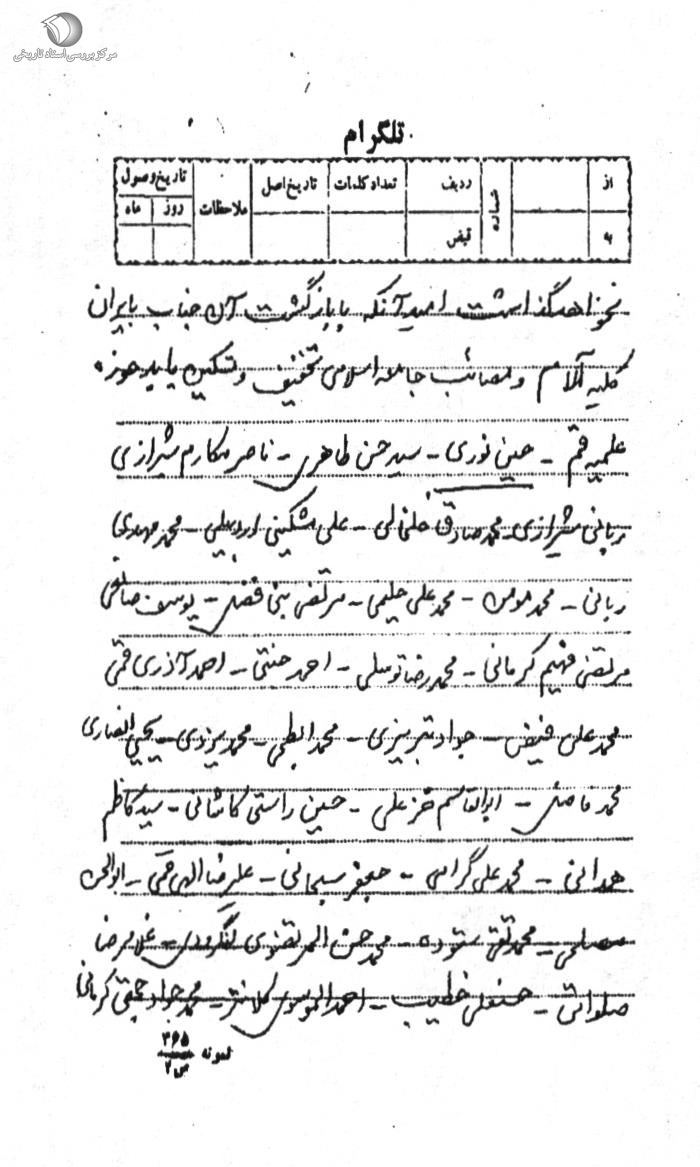 مرکز بررسی اسناد تاریخی
تلگرام
از
شماره
ردیف
تعداد کلمات
تاریخ اصل
ملاحظات
تاریخ وصول
به
قبض
روز
ماه
نخواهد گذاشت امید آنکه با بازگشت آن جناب بایران
کلیه آلام و مصائب جامعه اسلامی تخفیف و تسکین یابد حوزه
علمیه قم - حسین نوری - سید حسن طاهری - ناصر مکارم شیرازی
ربانی شیرازی - محمد صادق خلخالی - علی مشکینی اردبیلی - محمد مهدی
ربانی - محمد مومن - محمد علی حلیمی - مرتضی بنی فضل - یوسف صانعی
مرتضی فهیم کرمانی - محمد رضا توسلی - احمد جنتی - احمد آذری قمی
محمد علی فیض - جواد تبریزی - محمد ابطحی - محمد یزدی - یحیی انصاری
محمد فاضل - ابوالقاسم خزعلی - حسین راستی کاشانی - سید کاظم
همدانی - محمد علی گرامی - جعفر سبحانی - علیرضا الهی قمی - ابوالحسن
مصلحی - محمد تقی ستوده - محمد حسن المرتضوی لنگرودی - غلامرضا
صلواتی - حسنعلی خطیب - احمد الموسوی کلانتر - محمد جواد حجتی کرمانی
نمونه ۳۶۵
ص ۲